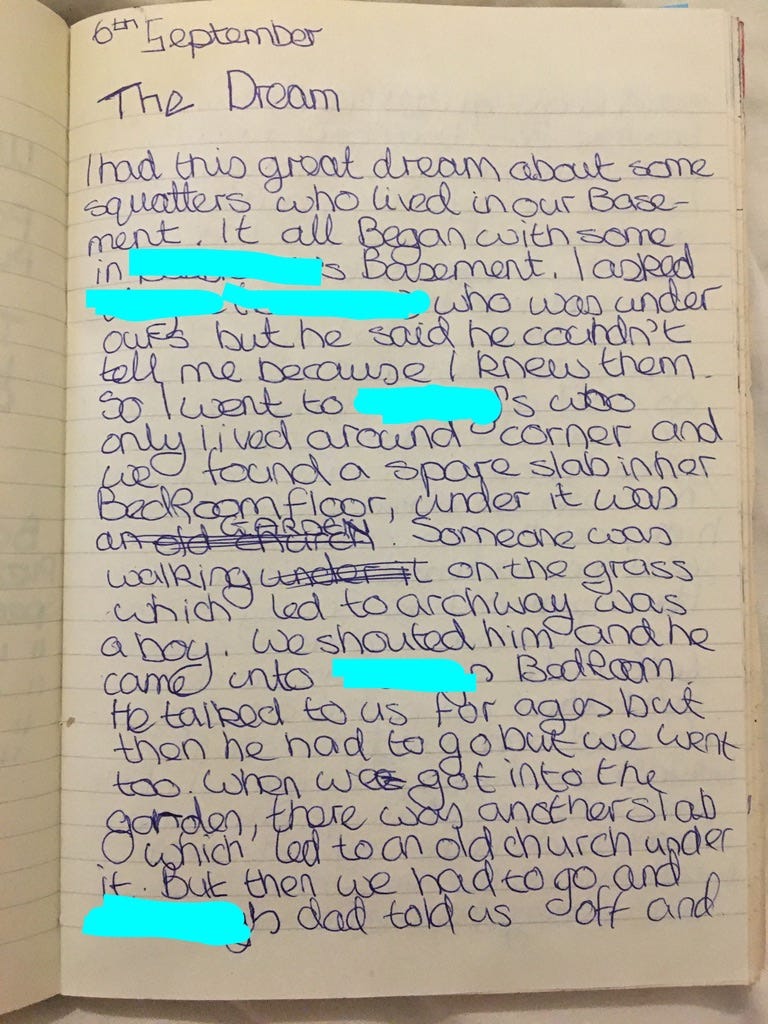 6th September
The Dream
I had this great dream about some
squatters who lived in our Base-
ment. It all Began with some
in 's Basement. I asked
who was under
ours but he said he couldn't
tell me because I knew them.
So I went to 's who
only lived around corner and
we found a spare slab in her
BedRoom floor, under it was
an old church GARDEN. Someone was
walking under it on the grass
which led to archway was
a boy. We shouted him and he
came into s BedRoom.
He talked to us for ages but
then he had to go but we went
too. When we got into the
garden, there was another slab
which led to an old church under
it. But then we had to go and
's dad told us off and